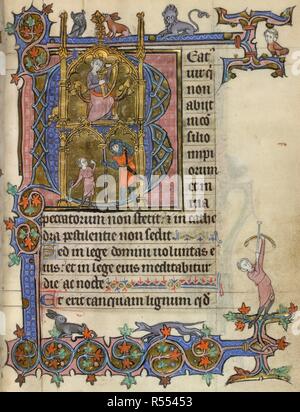 B
eat'
uir q
non
abijt
in co
silio
impi
orum
et in
uia
peccatorum non stetit: & in cathe
dra pestilentie non sedit.
Sed in lege domini uoluntas e
ius: et in lege eius meditabitur
die ac nocte.
Et erit tanquam lignum qd